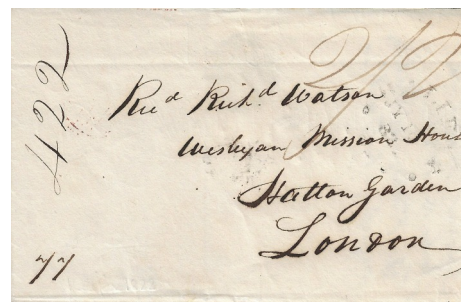 422
2/2
Revd Richd Watson
Wesleyan Mission Hou
Hatton Garden
London
77